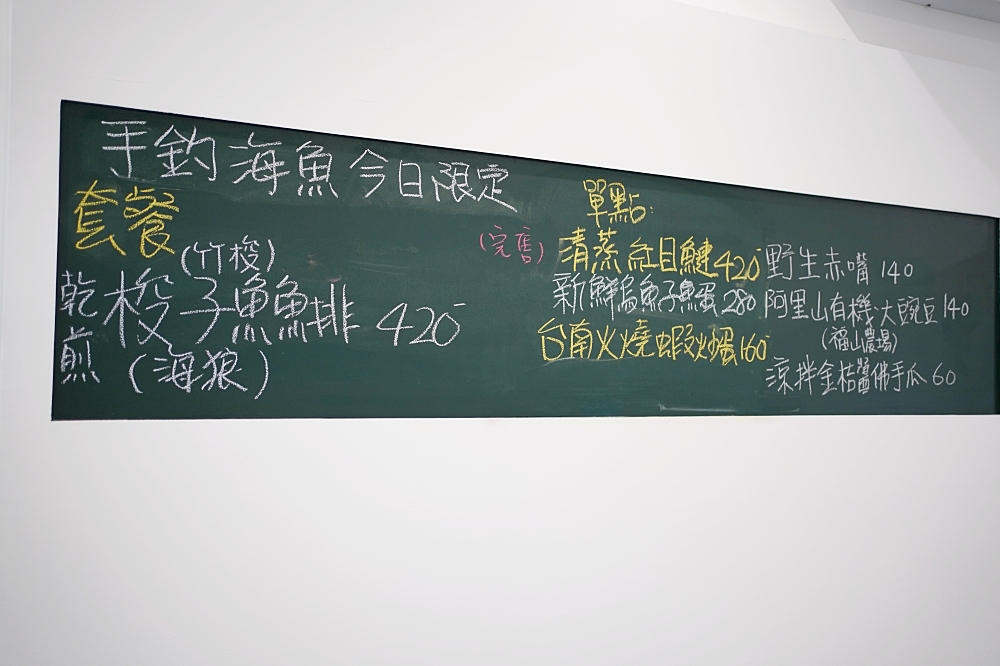 手釣海魚今日限定
套餐
(竹梭)
乾煎梭子魚魚排 420-
(海狼)
單點:
(完售)
清蒸紅目鰱420-
新鮮烏魚子魚蛋280-
台南火燒蝦炒蛋160-
野生赤嘴 140
阿里山有機大豌豆140
(福山農場)
涼拌金桔醬佛手瓜 60